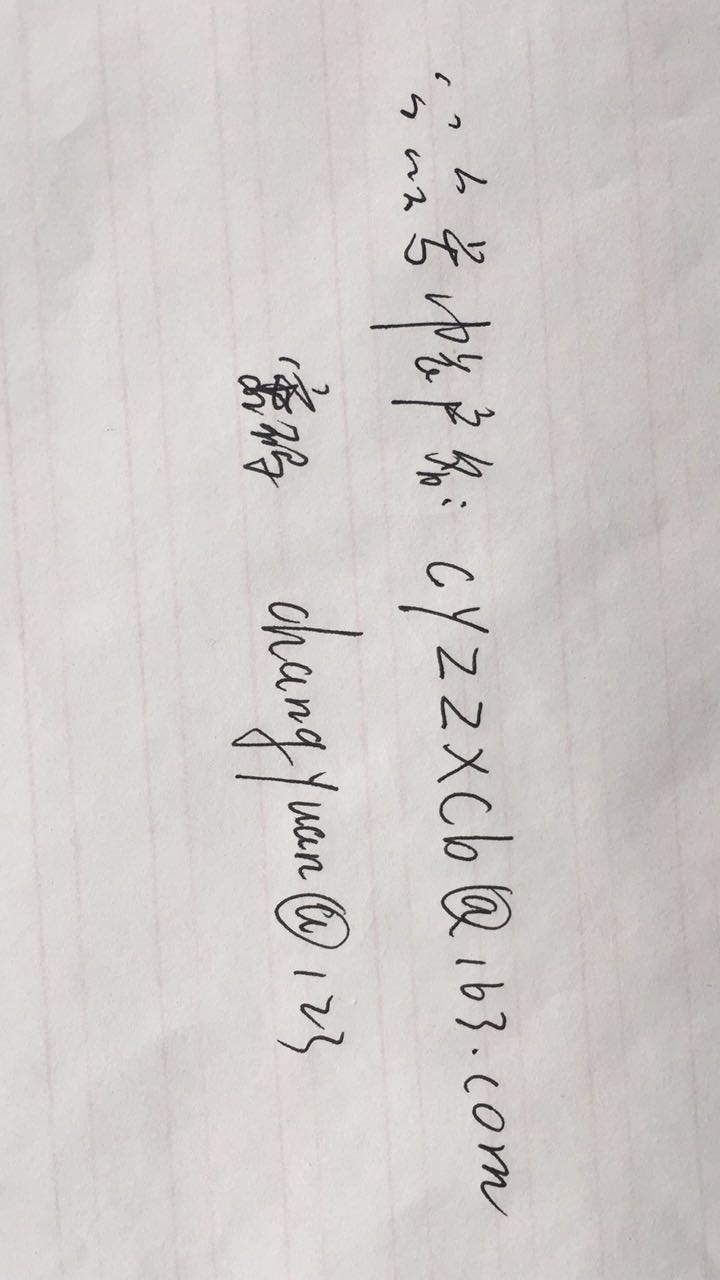 公众号帐户名: cyzzxcb@163.com
密码 changyuan@123